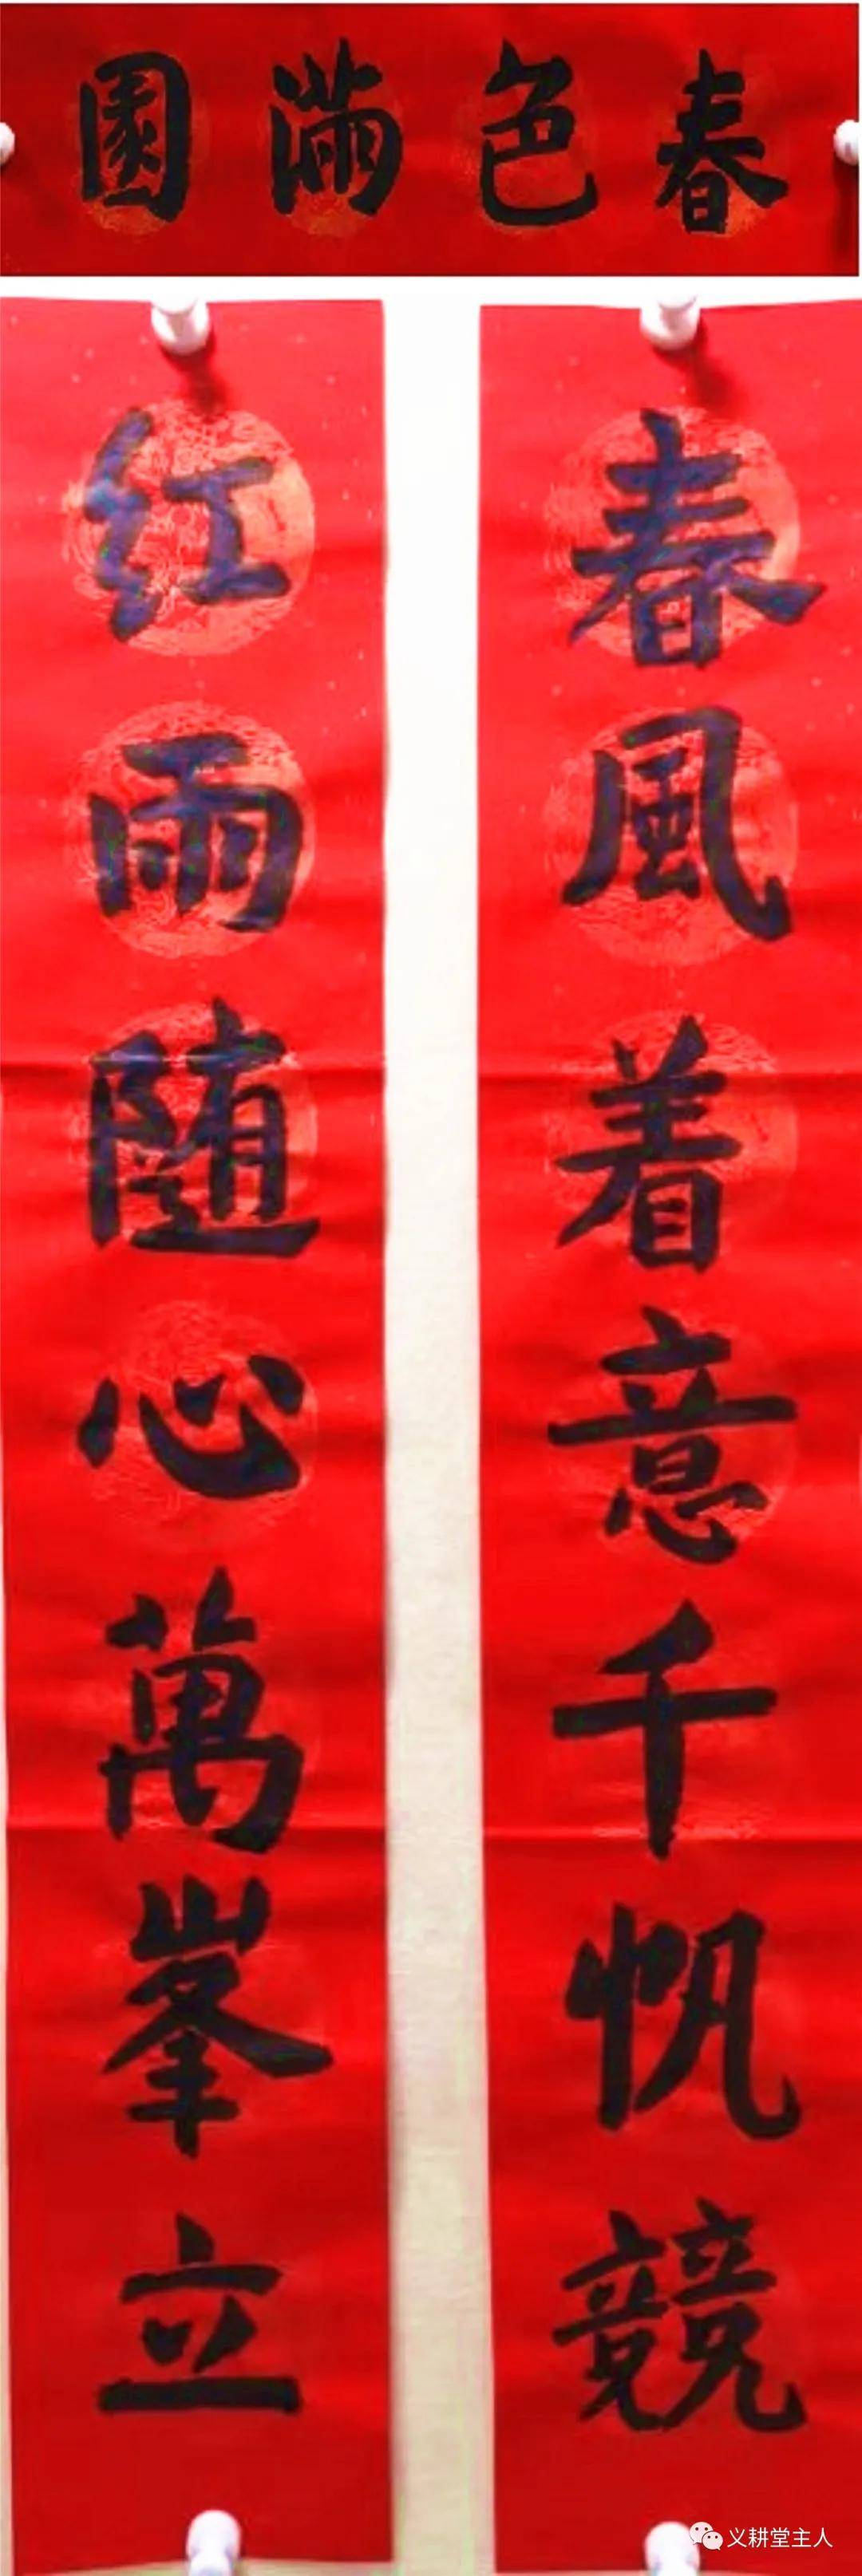 春色滿園
春風着意千帆競
红雨随心萬峯立
义耕堂主人